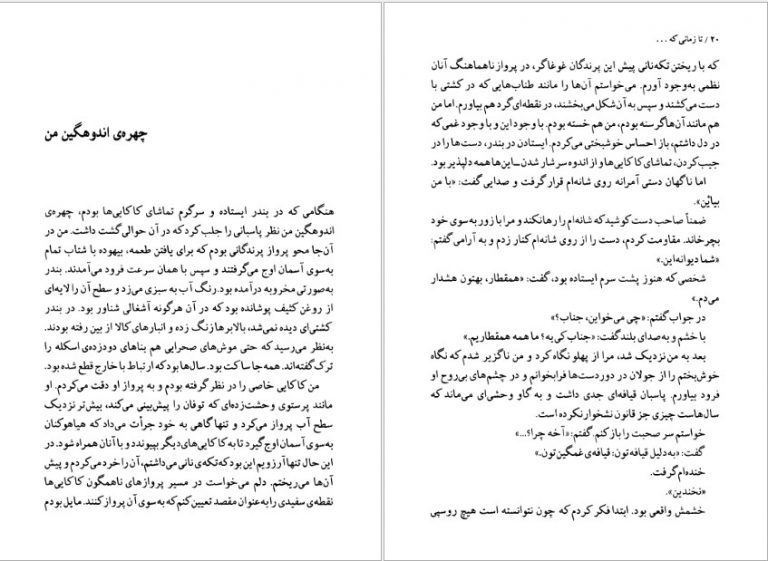 چهره‌ی اندوهگین من
هنگامی که در بندر ایستاده و سرگرم تماشای کاکایی‌ها بودم، چهره‌ی
اندوهگین من نظر پاسبانی را جلب کرد که در آن حوالی گشت داشت. من در
آن‌جا محو پرواز پرندگانی بودم که برای یافتن طعمه، بیهوده با شتاب تمام
به‌سوی آسمان اوج می‌گرفتند و سپس با همان سرعت فرود می‌آمدند. بندر
به‌صورتی مخروبه درآمده بود. رنگ آب به سبزی می‌زد و سطح آن را لایه‌ای
از روغن کثیف پوشانده بود که در آن هرگونه آشغالی شناور بود. در بندر
کشتی‌ای دیده نمی‌شد، بالابرها زنگ زده و انبارهای کالا از بین رفته بودند.
به‌نظر می‌رسید که حتی موش‌های صحرایی هم بناهای دودزده‌ی اسکله را
ترک گفته‌اند. همه‌جا ساکت بود. سال‌ها بود که ارتباط با خارج قطع شده بود.
من کاکایی خاصی را در نظر گرفته بودم و به پرواز او دقت می‌کردم. او
مانند پرستوی وحشت‌زده‌ای که توفان را پیش‌بینی می‌کند، بیش‌تر نزدیک
سطح آب پرواز می‌کرد و تنها گاهی به خود جرأت می‌داد که هیاهوکنان
به‌سوی آسمان اوج گیرد تا به کاکایی‌های دیگر بپیوندد و با آنان همراه شود. در
این حال تنها آرزویم این بود که تکه‌ی نانی می‌داشتم، آن را خرد می‌کردم و پیش
آن‌ها می‌ریختم. دلم می‌خواست در مسیر پروازهای ناهمگون کاکایی‌ها
نقطه‌ی سفیدی را به‌عنوان مقصد تعیین کنم که به‌سوی آن پرواز کنند. مایل بودم
۲۰ / تا زمانی که ...
که با ریختن تکه‌نانی پیش این پرندگان غوغاگر، در پرواز ناهماهنگ آنان
نظمی به‌وجود آورم. می‌خواستم آن‌ها را مانند طناب‌هایی که در کشتی با
دست می‌کشند و سپس به آن شکل می‌بخشند، در نقطه‌ای گرد هم بیاورم. اما من
هم مانند آن‌ها گرسنه بودم، من هم خسته بودم. با وجود این و با وجود غمی که
در دل داشتم، باز احساس خوشبختی می‌کردم. ایستادن در بندر، دست‌ها را در
جیب کردن، تماشای کاکایی‌ها و از اندوه سرشار شدن ــ این‌ها همه دلپذیر بود.
اما ناگهان دستی آمرانه روی شانه‌ام قرار گرفت و صدایی گفت: «با من
بیایْن».
ضمناً صاحب دست کوشید که شانه‌ام را رها نکند و مرا با زور به‌سوی خود
بچرخاند. مقاومت کردم، دست را از روی شانه‌ام کنار زدم و به آرامی گفتم:
«شما دیوانه‌این.»
شخصی که هنوز پشت سرم ایستاده بود، گفت: «همقطار، بهتون هشدار
می‌دم.»
در جواب گفتم: «چی می‌خواین، جناب؟»
با خشم و به‌صدای بلند گفت: «جناب کی یه؟ ما همه همقطاریم.»
بعد به من نزدیک شد، مرا از پهلو نگاه کرد و من ناگزیر شدم که نگاه
خوش‌بختم را از جولان در دوردست‌ها فرابخوانم و در چشم‌های بی‌روح او
فرود بیاورم. پاسبان قیافه‌ای جدی داشت و به گاو وحشی‌ای می‌ماند که
سال‌هاست چیزی جز قانون نشخوار نکرده است.
خواستم سر صحبت را باز کنم. گفتم: «آخه چرا؟...»
گفت: «به‌دلیل قیافه‌تون: قیافه‌ی غمگین‌تون.»
خنده‌ام گرفت.
«نخندین».
خشمش واقعی بود. ابتدا فکر کردم که چون نتوانسته است هیچ روسپی